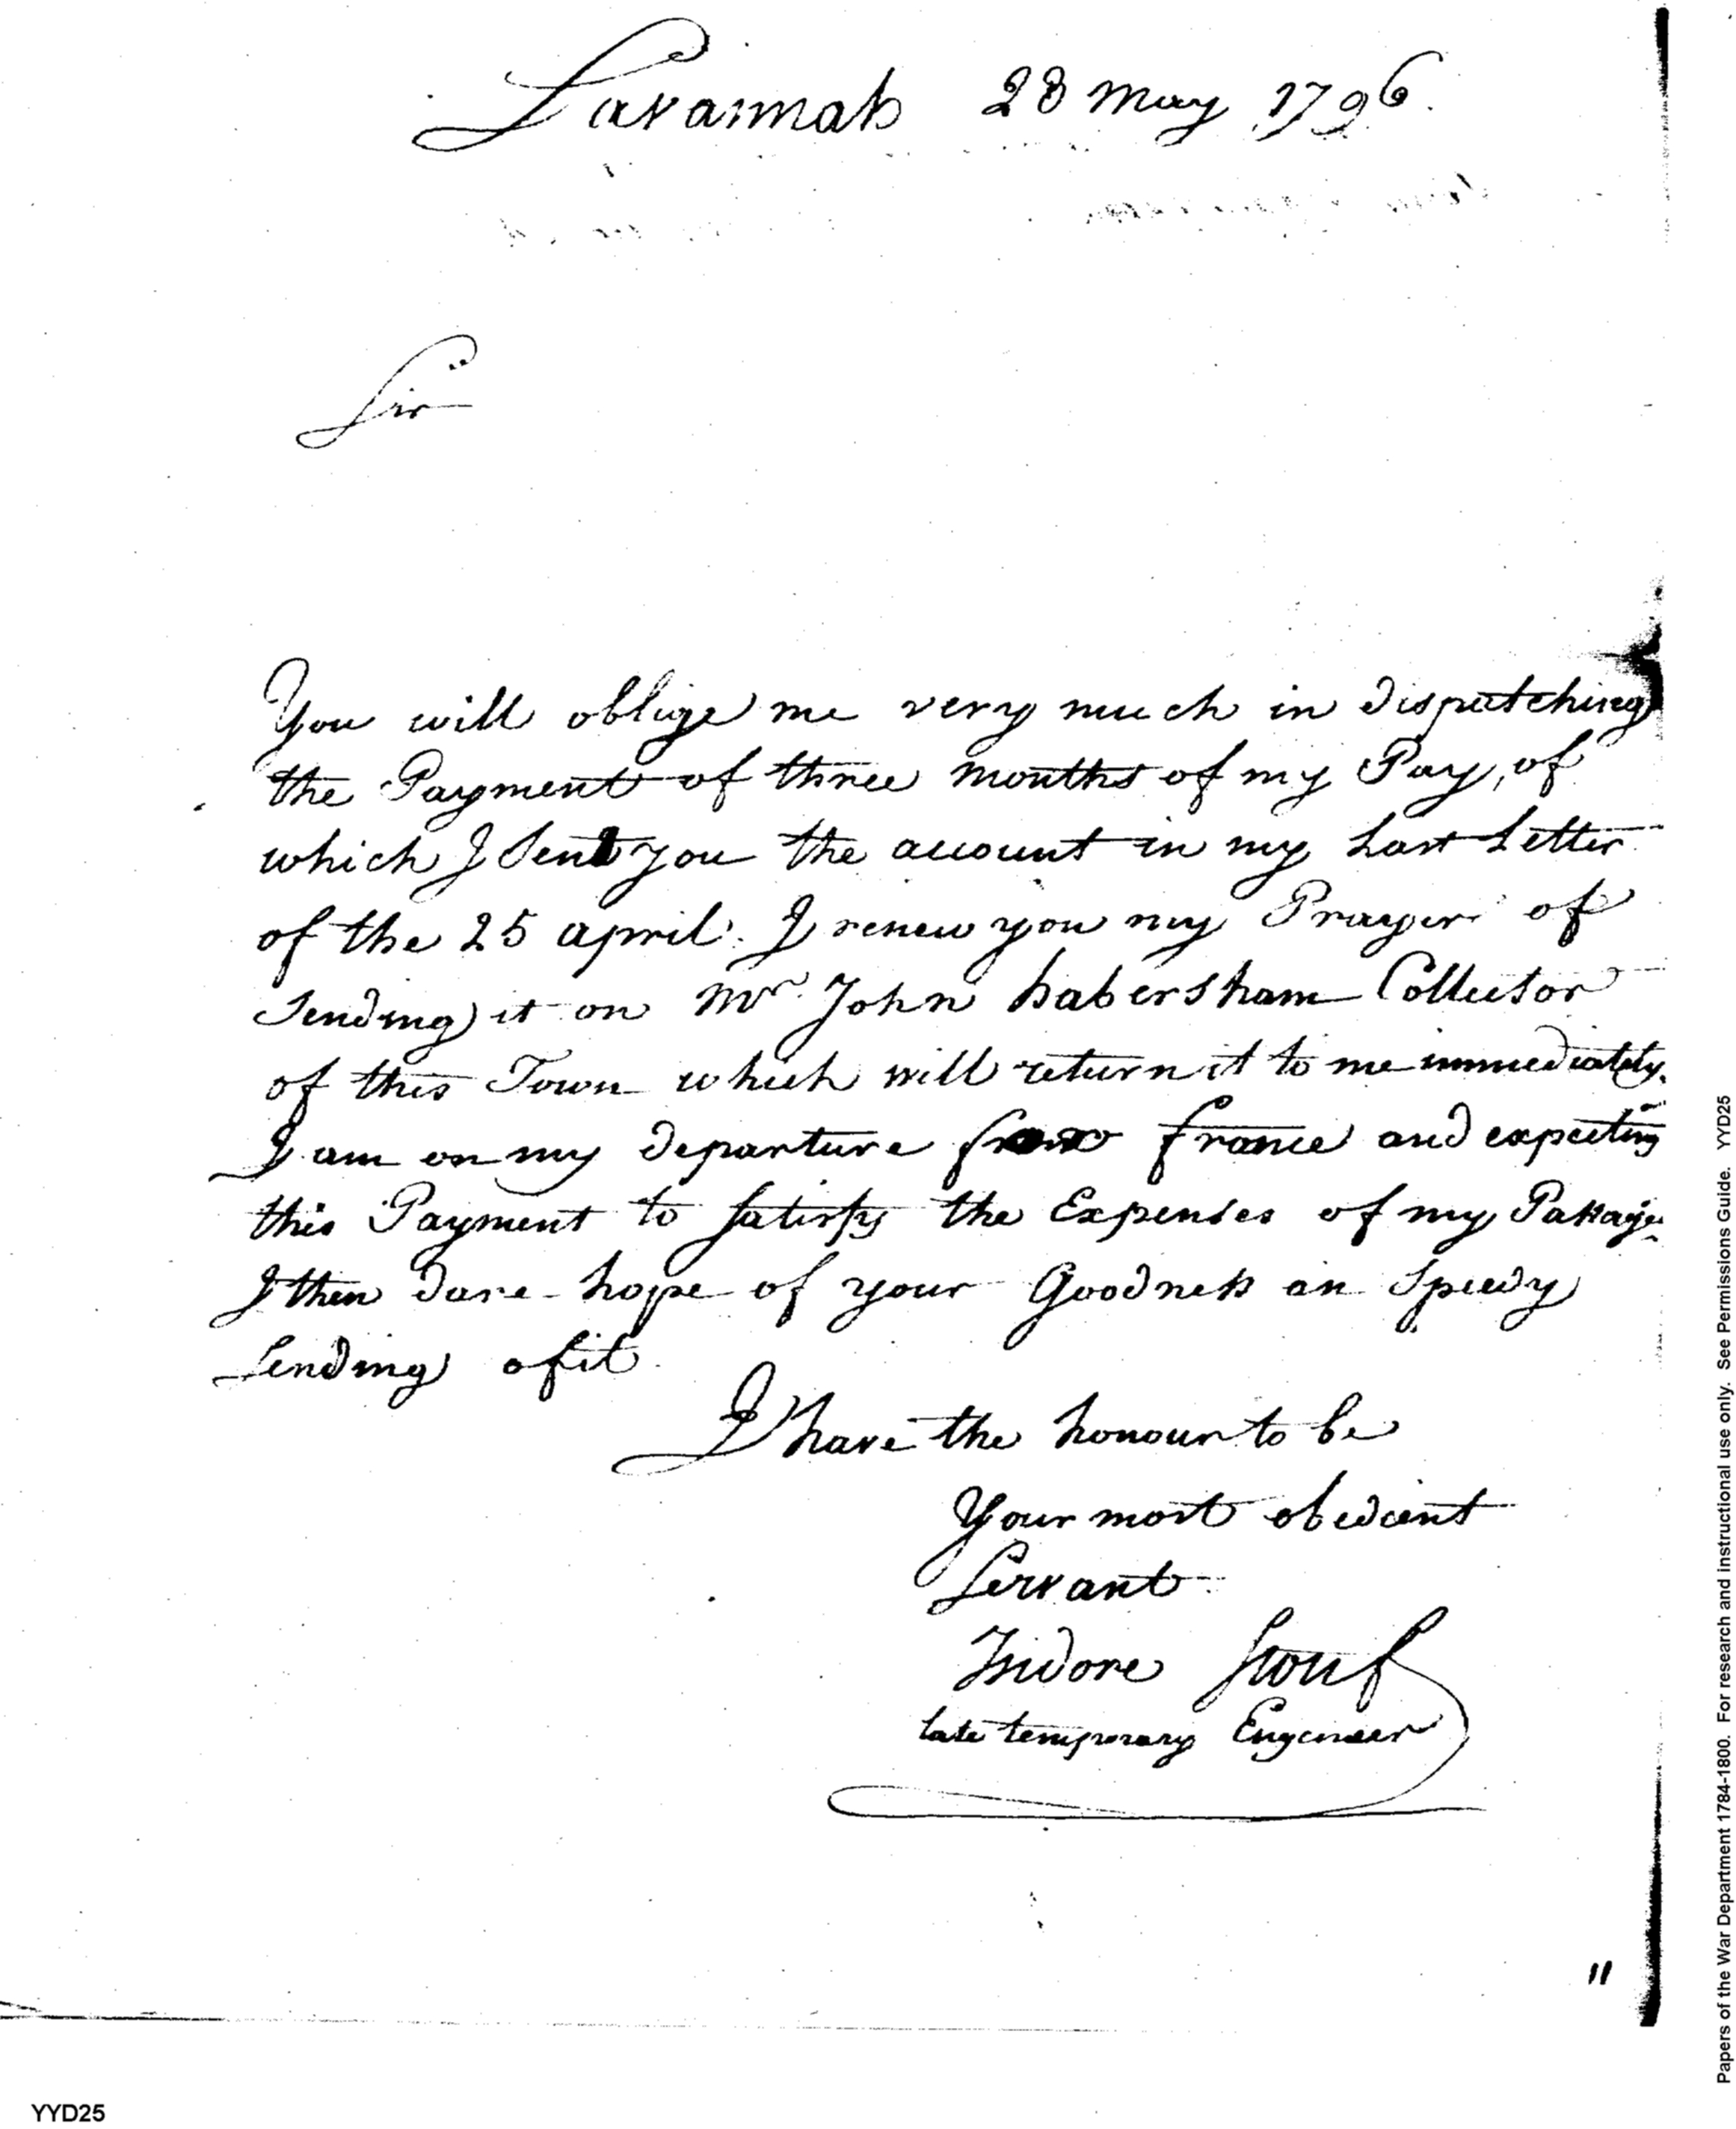 Savannah 28 May 1796.
Sir
You will oblige me very much in dispatching
the Payment of three months of my Pay, of
which I Sent you the account in my Last Letter
of the 25 april. I renew you my Prayer of
Sending it on Mr. John habersham Collector
of this Town which will return it to me immediately.
I am on my departure france and expecting
this Payment to Satisfy the Expenses of my Passage.
I then dare hope of your Goodness an Speedy
Sending of it.
I have the honour to be
Your most obedient
Servant
Isidore Stouf
late temporary Engineer
"
YYD25
Papers of the War Department 1784-1800. For research and instructional use only. See Permissions Guide. YYD25